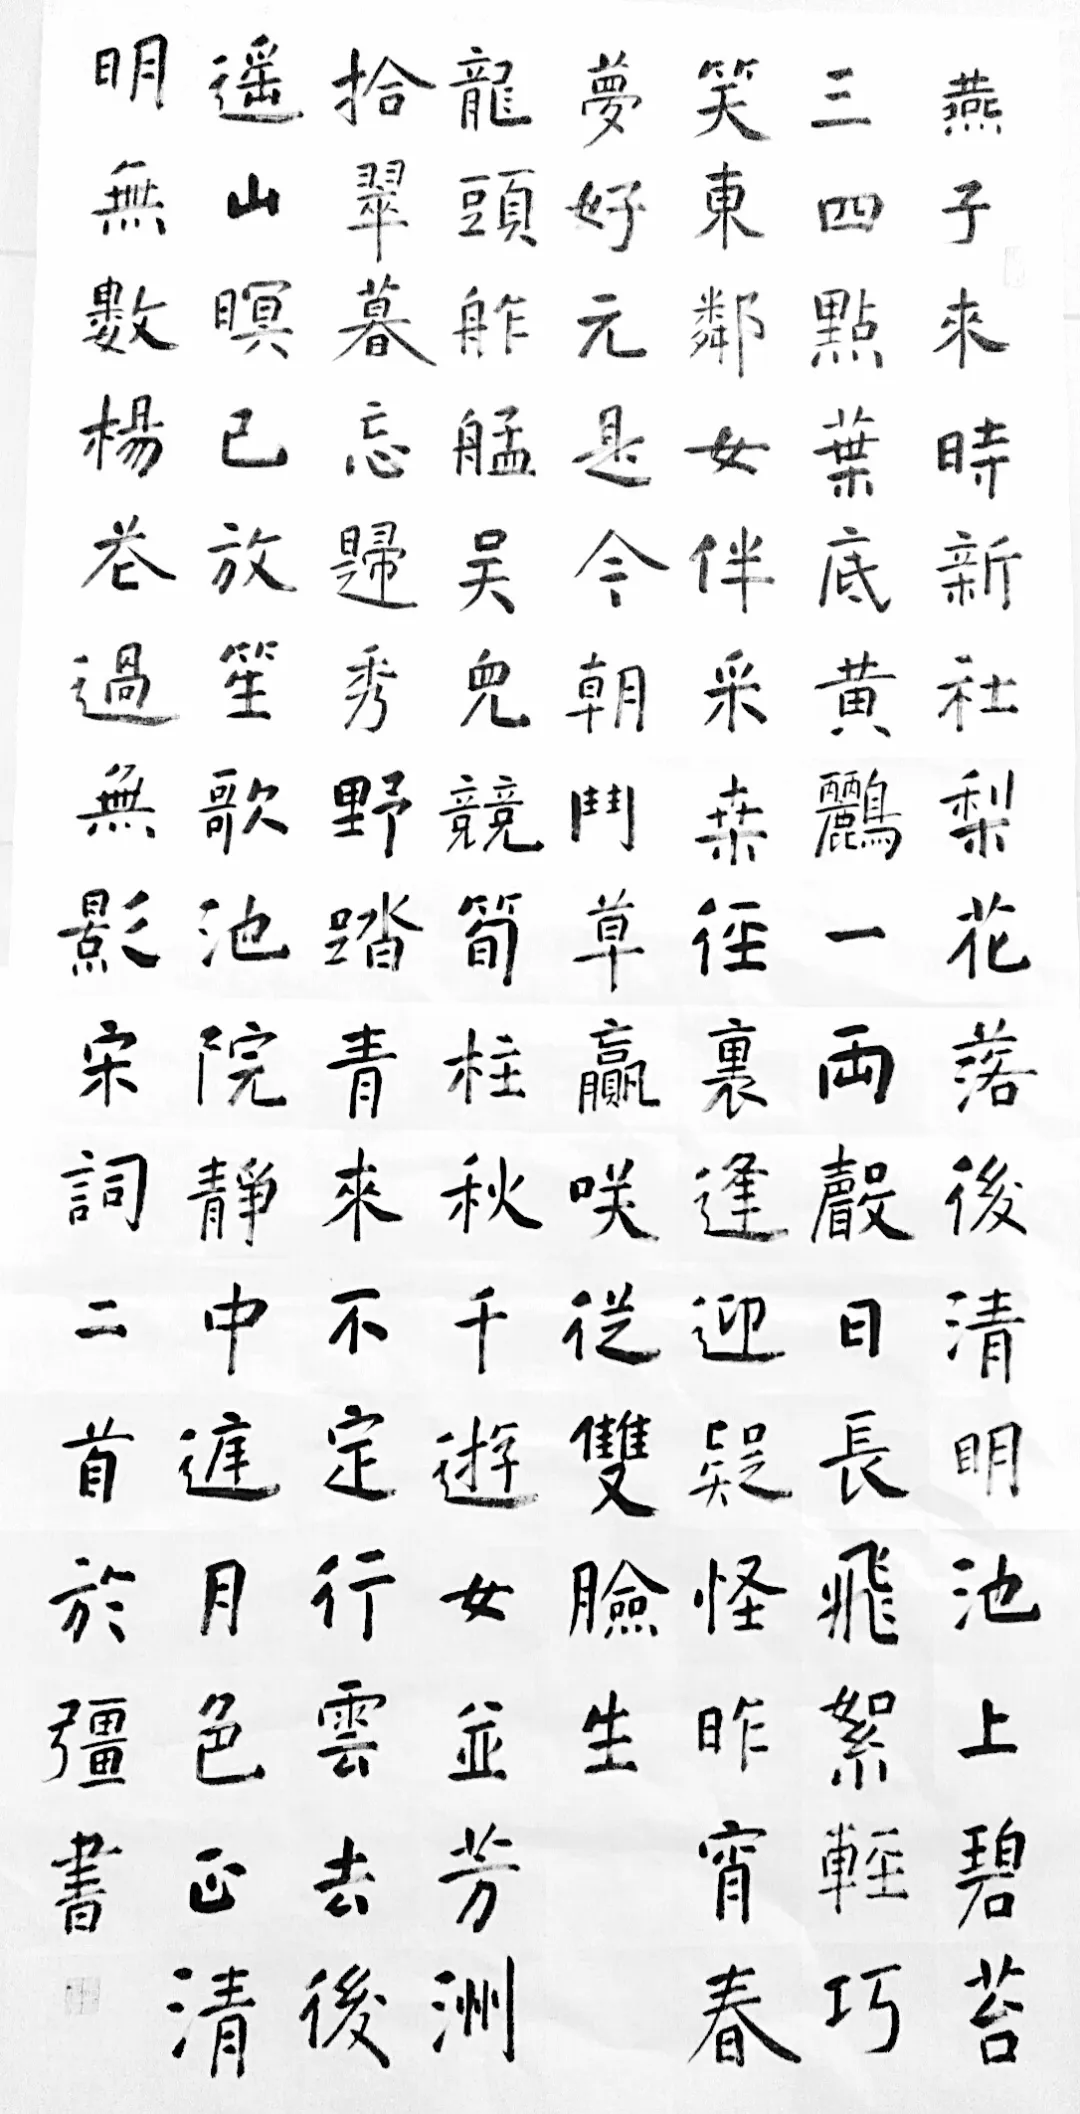 燕子來時新社梨花落後清明池上碧苔
三四點葉底黃鸝一兩聲日長飛絮輕巧
笑東鄰女伴采桑徑裏逢迎疑怪昨宵春
夢好元是今朝鬥草贏咲從雙臉生
龍頭舴艋吴兒競筍柱秋千遊女並芳洲
拾翠暮忘歸秀野踏青來不定行雲去後
遥山暝已放笙歌池院靜中庭月色正清
明無數楊花過無影宋詞二首於彊書